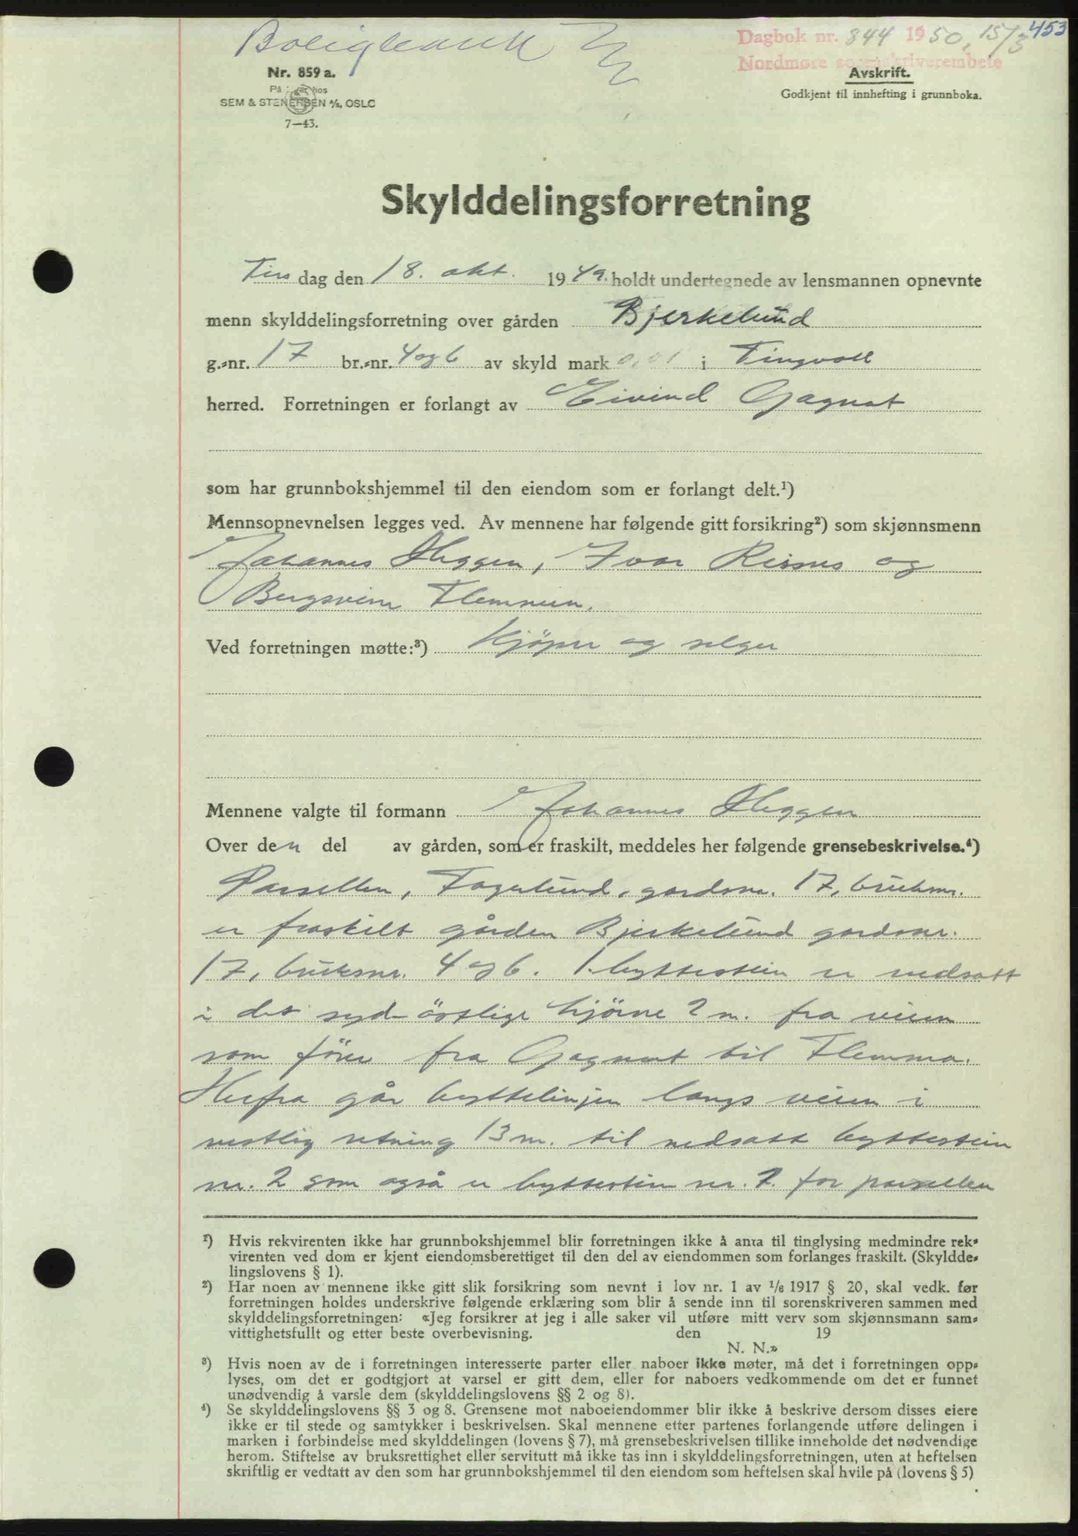 Boligbank
Dagbok nr. 844 1950, 15/3 453
Nordmøre sorenskriverembete
Nr. 859 a.
SEM & STENERSEN A/S, OSLO
7—43.
Avskrift.
Godkjent til innhefting i grunnboka.
Skylddelingsforretning
Tirsdag den 18. okt. 1949. holdt undertegnede av lensmannen opnevnte
menn skylddelingsforretning over gården Bjerkelund
g.-nr. 17 br.-nr. 4 og 6 av skyld mark 0,01 i Tingvoll
herred. Forretningen er forlangt av Eivind Gagnat
som har grunnbokshjemmel til den eiendom som er forlangt delt.¹)
Mennsopnevnelsen legges ved. Av mennene har følgende gitt forsikring²) som skjønnsmenn
Johannes Heggem, Ivar Risnes og
Bergsvein Flemmen.
Ved forretningen møtte:³) Kjøper og selger
Mennene valgte til formann Johannes Heggem
Over den del av gården, som er fraskilt, meddeles her følgende grensebeskrivelse.⁴)
Parsellen, Fagerlund, gardsnr. 17, bruksnr.
er fraskilt gården Bjerkelund gardsnr.
17, bruksnr. 4 og 6. 1. byttestein er nedsatt
i det syd-östlige hjörne 2 m. fra veien
som förer fra Gagnat til Flemma.
Herfra går byttelinjen langs veien i
vestlig retning 13 m. til nedsatt byttestein
nr. 2 som også er byttestein nr. 2. for parsellen
¹) Hvis rekvirenten ikke har grunnbokshjemmel blir forretningen ikke å anta til tinglysing medmindre rek-
virenten ved dom er kjent eiendomsberettiget til den del av eiendommen som forlanges fraskilt. (Skyldde-
lingslovens § 1).
²) Har noen av mennene ikke gitt slik forsikring som nevnt i lov nr. 1 av 1/6 1917 § 20, skal vedk. før
forretningen holdes underskrive følgende erklæring som blir å sende inn til sorenskriveren sammen med
skylddelingsforretningen: «Jeg forsikrer at jeg i alle saker vil utføre mitt verv som skjønnsmann sam-
vittighetsfullt og etter beste overbevisning. den 19
N. N.»
³) Hvis noen av de i forretningen interesserte parter eller naboer ikke møter, må det i forretningen opp-
lyses, om det er godtgjort at varsel er gitt dem, eller for naboers vedkommende om det er funnet
unødvendig å varsle dem (skylddelingslovens §§ 2 og 8).
⁴) Se skylddelingslovens §§ 3 og 8. Grensene mot naboeiendommer blir ikke å beskrive dersom disses eiere
ikke er til stede og samtykker i beskrivelsen. Skal mennene etter partenes forlangende utføre delingen i
marken i forbindelse med skylddelingen (lovens § 7), må grensebeskrivelsen tillike inneholde det nødvendige
herom. Stiftelse av bruksrettighet eller servitutt må ikke tas inn i skylddelingsforretningen, uten at heftelsen
skriftlig er vedtatt av den som har grunnbokshjemmel til den eiendom som heftelsen skal hvile på (lovens § 5)